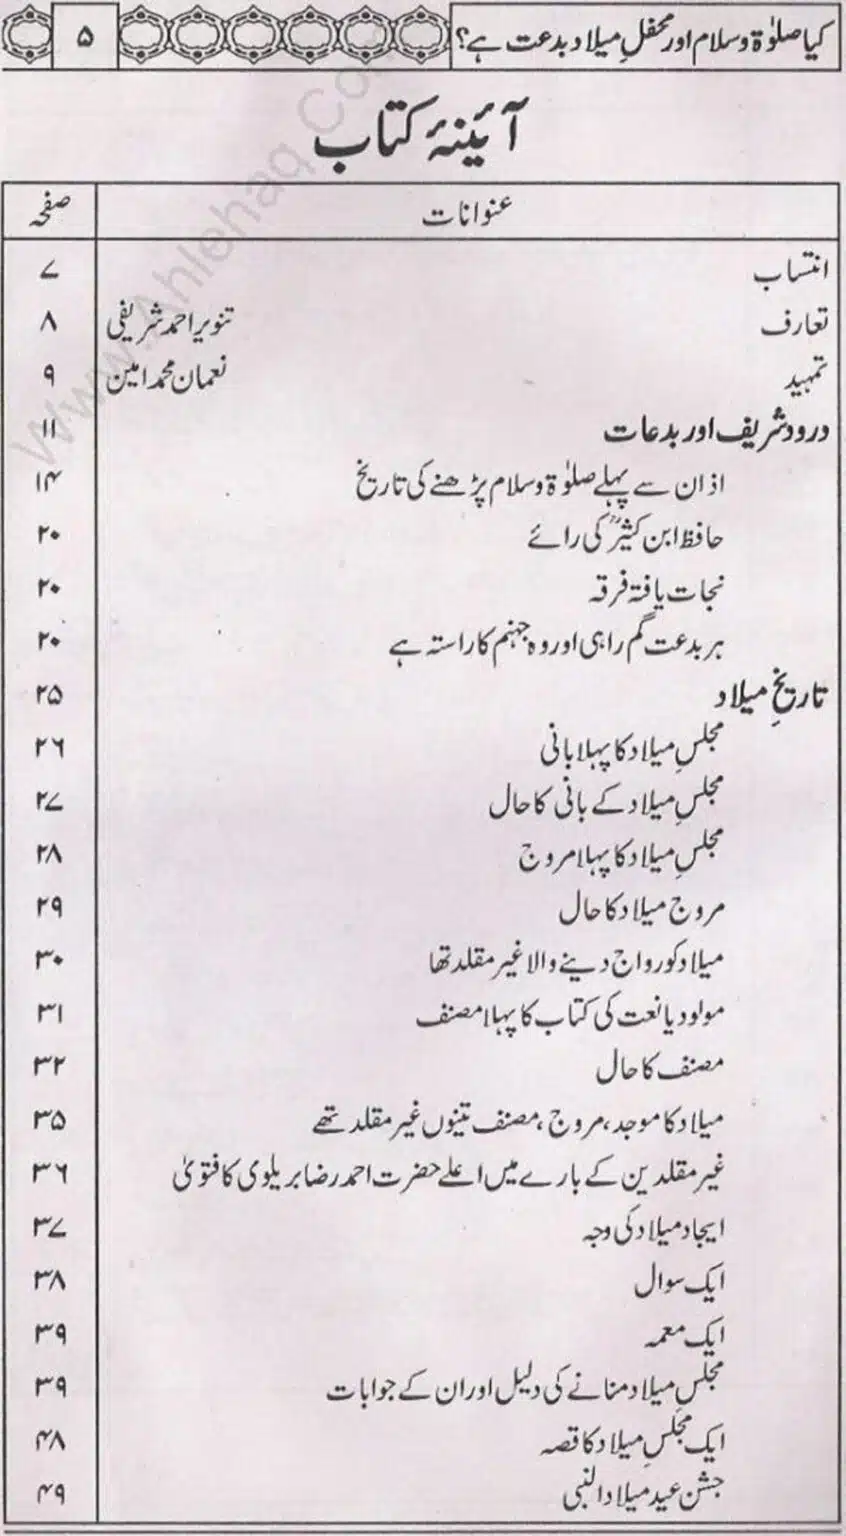 کیا صلوٰۃ وسلام اور محفلِ میلاد بدعت ہے؟ ۵
آئینۂ کتاب
عنوانات صفحہ
انتساب ۷
تعارف تنویر احمد شریفی ۸
تمہید نعمان محمد امین ۹
درود شریف اور بدعات ۱۱
اذان سے پہلے صلوٰۃ وسلام پڑھنے کی تاریخ ۱۴
حافظ ابن کثیرؒ کی رائے ۲۰
نجات یافتہ فرقہ ۲۰
ہر بدعت گم راہی اور وہ جہنم کا راستہ ہے ۲۰
تاریخِ میلاد ۲۵
مجلسِ میلاد کا پہلا بانی ۲۶
مجلسِ میلاد کے بانی کا حال ۲۷
مجلسِ میلاد کا پہلا مروج ۲۸
مروج میلاد کا حال ۲۹
میلاد کو رواج دینے والا غیر مقلد تھا ۳۰
مولود یا نعت کی کتاب کا پہلا مصنف ۳۱
مصنف کا حال ۳۲
میلاد کا موجد، مروج، مصنف تینوں غیر مقلد تھے ۳۵
غیر مقلدین کے بارے میں اعلےٰ حضرت احمد رضا بریلوی کا فتویٰ ۳۶
ایجاد میلاد کی وجہ ۳۷
ایک سوال ۳۸
ایک معمہ ۳۹
مجلسِ میلاد منانے کی دلیل اور ان کے جوابات ۳۹
ایک مجلسِ میلاد کا قصہ ۴۸
جشن عید میلاد النبی ۴۹
Www.Ahlehaq.Com